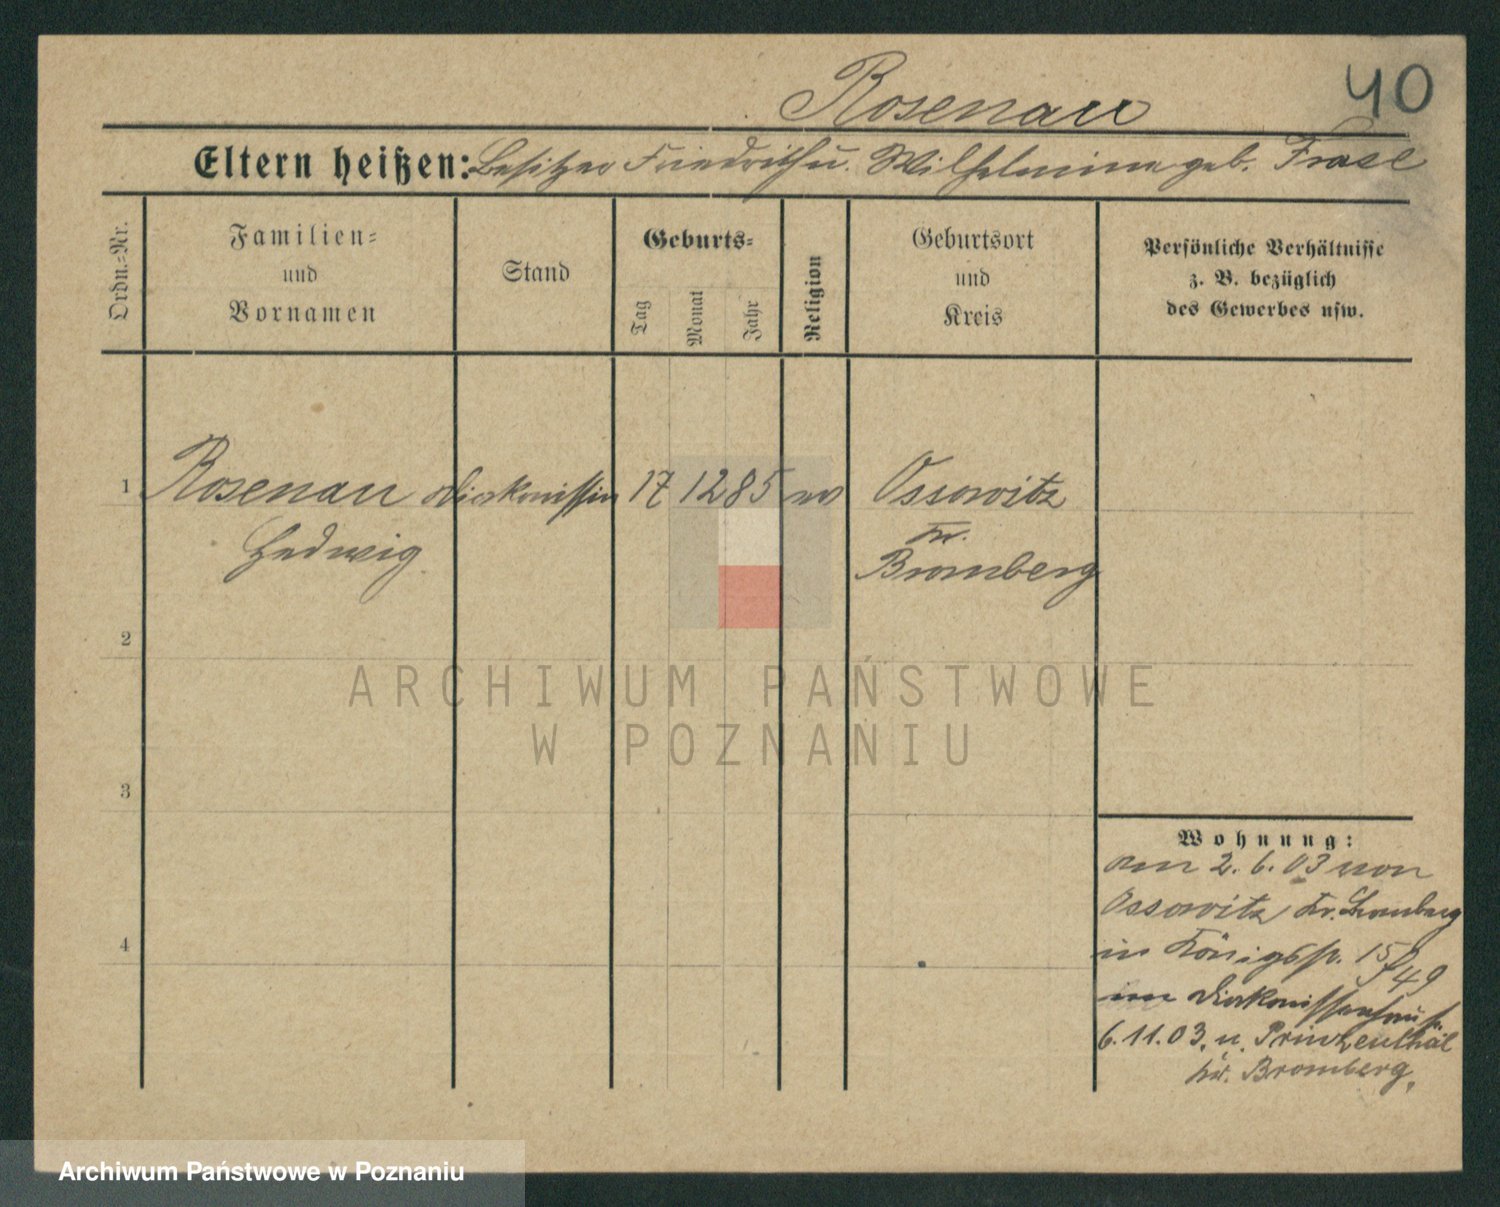 40
Rosenau
Eltern heißen: Besitzer Friedrich u. Wilhelmine geb. Frase
Ordn.-Nr.
Familien-
und
Vornamen
Stand
Geburts-
Tag
Monat
Jahr
Religion
Geburtsort
und
Kreis
Persönliche Verhältnisse
z. B. bezüglich
des Gewerbes usw.
1 Rosenau Diakonissin 17 12 85 ev Ossowitz
Hedwig
Kr.
Bromberg
2
3
4
Wohnung:
am 2. 6. 03 von
Ossowitz Kr. Bromberg
in Königspl.
im Diakonissenhaus
6.11.03. n. Prinzenthal
Kr. Bromberg.
ARCHIWUM PAŃSTWOWE
W POZNANIU
Archiwum Państwowe w Poznaniu